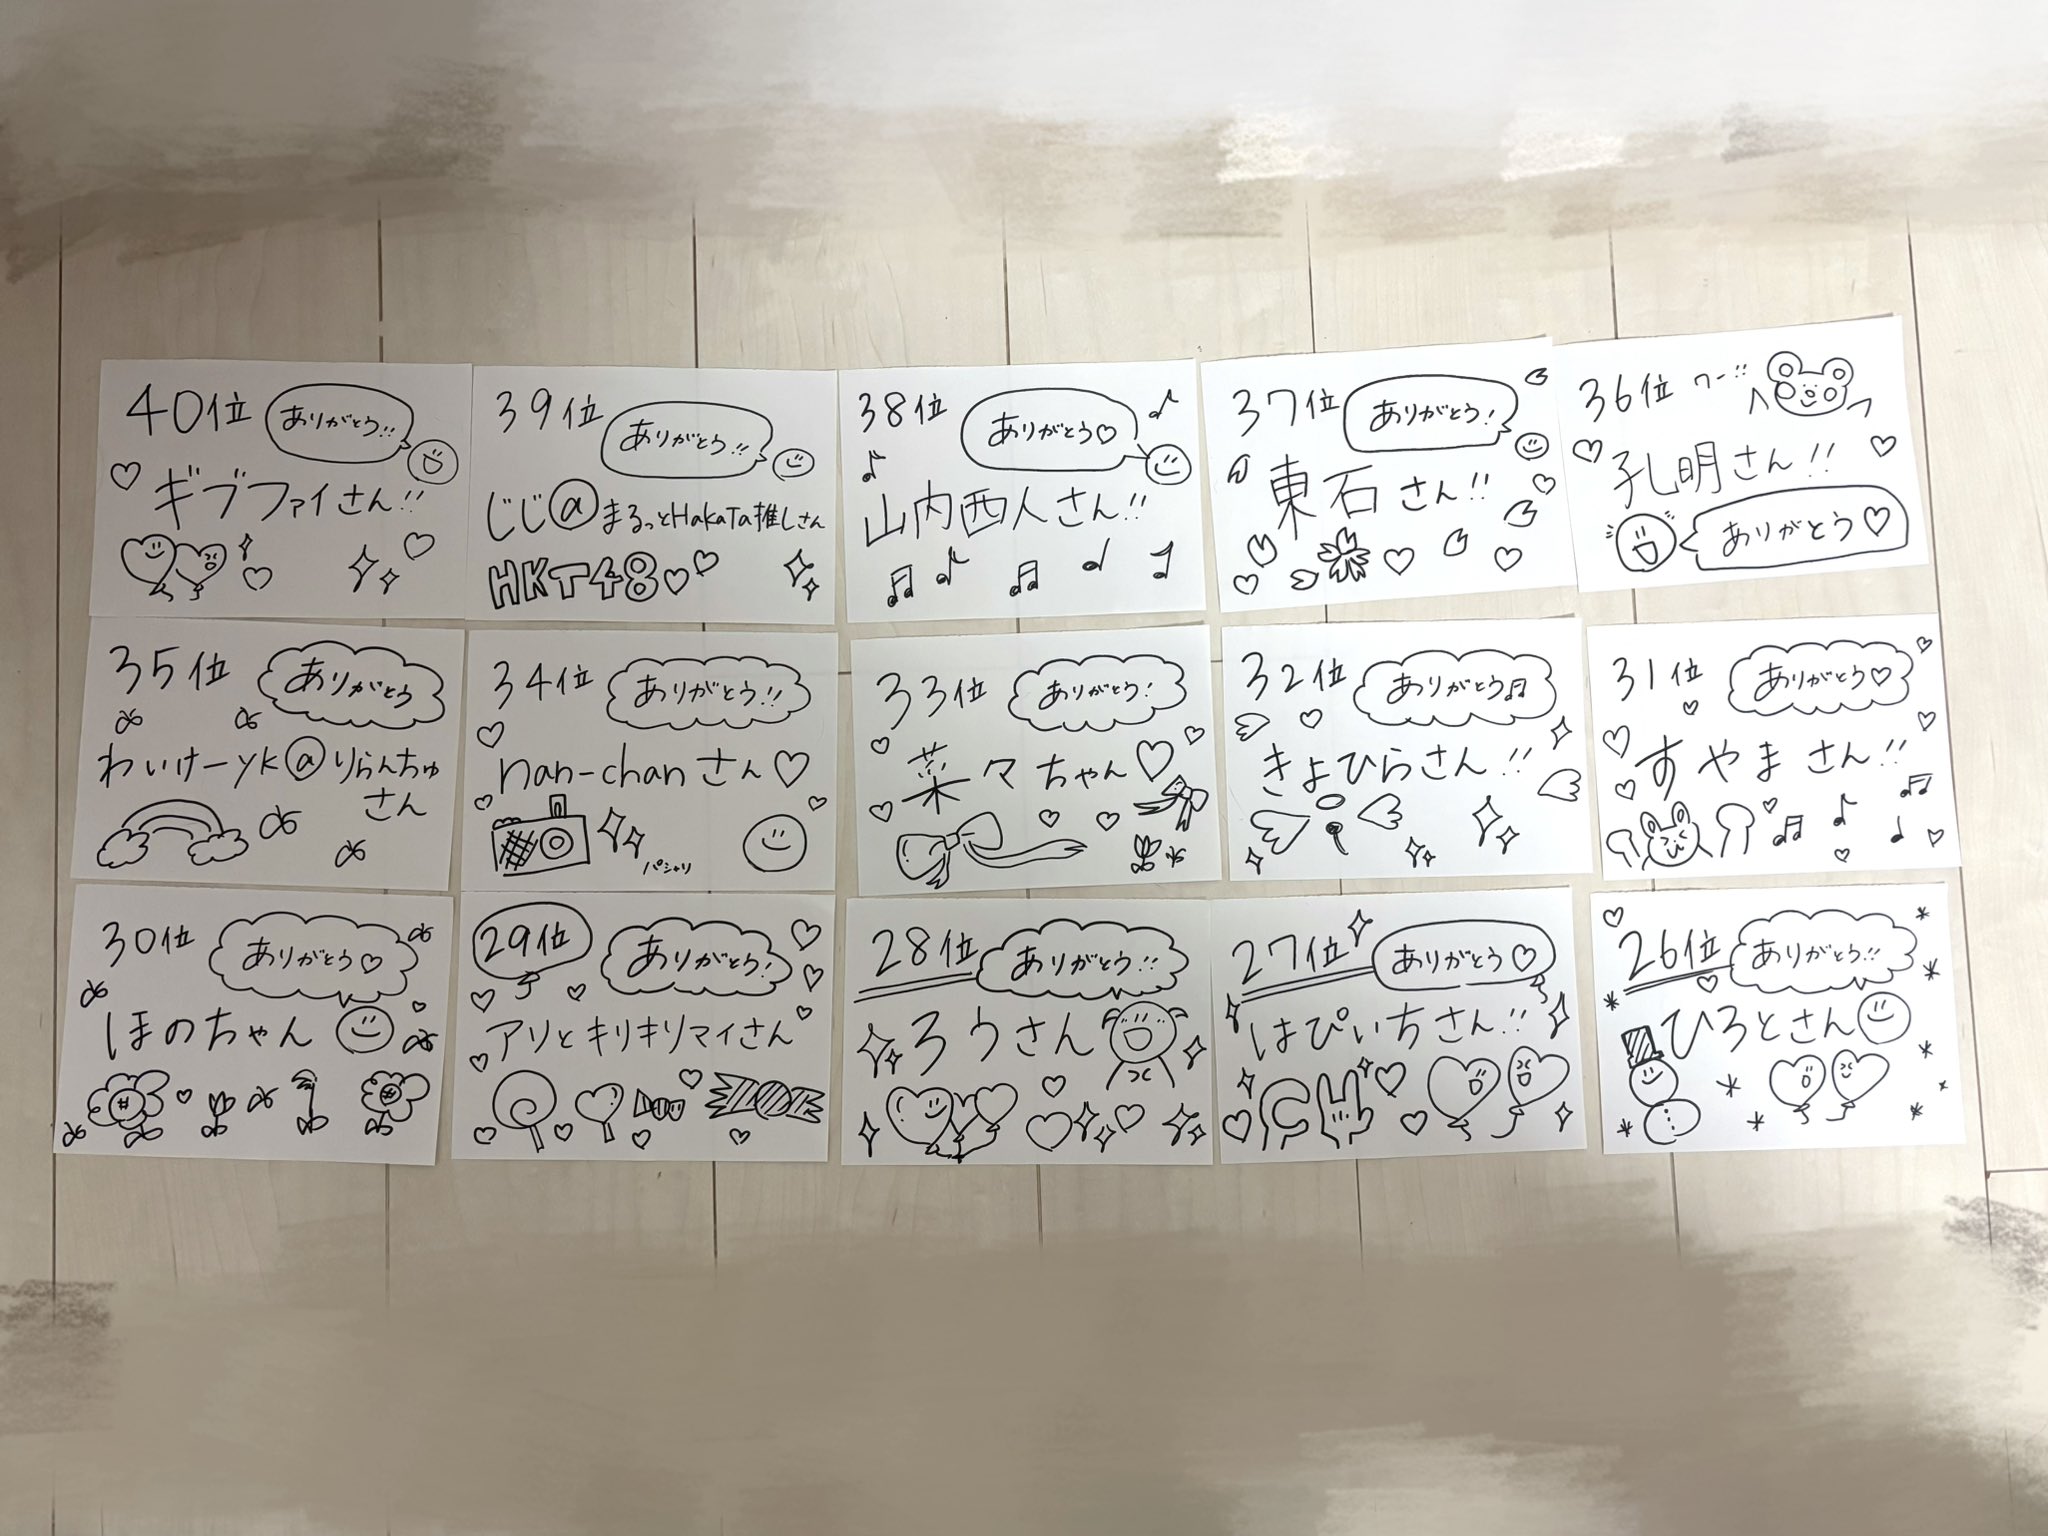 40位
ありがとう!!
ギブファイさん!!
39位
ありがとう!!
じじ@まるっとHaKaTa推しさん
HKT48
38位
ありがとう♡
山内西人さん!!
37位
ありがとう!
東石さん!!
36位
ワー!!
孔明さん!!
ありがとう♡
35位
ありがとう
わいけーyk@りらんちゅ
さん
34位
ありがとう!!
nan-chanさん♡
パシャリ
33位
ありがとう!
菜々ちゃん♡
32位
ありがとう♫
きよひらさん!!
31位
ありがとう♡
すやまさん!!
30位
ありがとう♡
ほのちゃん
29位
ありがとう!
アリとキリキリマイさん
28位
ありがとう!!
ろうさん
27位
ありがとう♡
はぴいちさん!!
26位
ありがとう!!
ひろとさん